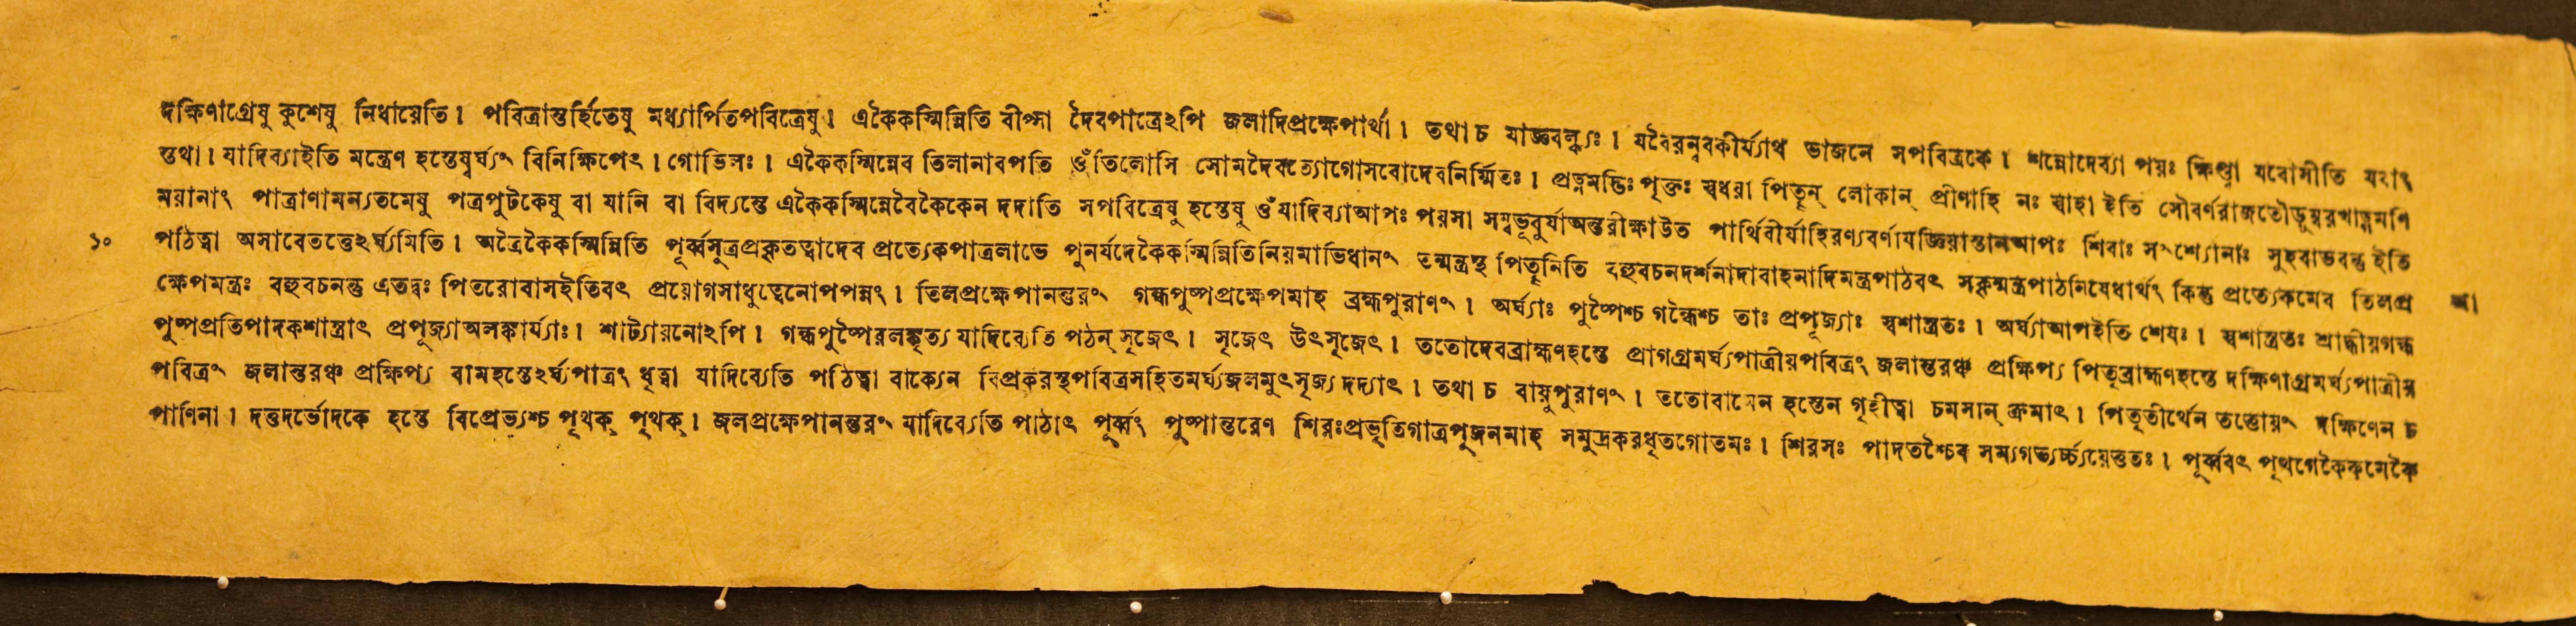 দক্ষিণাগ্রেষু কুশেষু নিধায়েতি। পবিত্রান্তর্হিতেষু মধ্যার্পিতপবিত্রেষু। একৈকস্মিন্নিতি বীপ্সা দৈবপাত্রেঽপি জলাদিপ্রক্ষেপার্থা। তথা চ যাজ্ঞবল্ক্যঃ। যবৈরন্ববকীর্য্যাথ ভাজনে সপবিত্রকে। শন্নোদেব্যা পয়ঃ ক্ষিপ্ত্বা যবোসীতি যবাং
স্তথা। যাদিব্যাইতি মন্ত্রেণ হস্তেষ্বর্ঘ্যং বিনিক্ষিপেৎ। গোভিলঃ। একৈকস্মিন্নেব তিলানাবপতি ওঁতিলোসি সোমদৈবত্যোগোসবোদেবনির্ম্মিতঃ। প্রত্নমদ্ভিঃ পৃক্তঃ স্বধয়া পিতৄন্ লোকান্ প্রীণাহি নঃ স্বাহা ইতি সৌবর্ণরাজতৌডুম্বরখাড়্গমণি
ময়ানাং পাত্রাণামন্যতমেষু পত্রপুটকেষু বা যানি বা বিদ্যন্তে একৈকস্মিন্নেবৈকৈকেন দদাতি সপবিত্রেষু হস্তেষু ওঁযাদিব্যাআপঃ পয়সা সম্বভূবুর্যাঅন্তরীক্ষাউত পার্থিবীর্যাহিরণ্যবর্ণাযজ্ঞিয়াস্তানআপঃ শিবাঃ সংশ্যোনাঃ সুহবাভবন্তু ইতি
১০ পঠিত্বা অসাবেতত্তেঽর্ঘ্যমিতি। অত্রৈকৈকস্মিন্নিতি পূর্ব্বসূত্রপ্রকৃতত্বাদেব প্রত্যেকপাত্রলাভে পুনর্যদেকৈকস্মিন্নিতিনিয়মাভিধানং তন্মন্ত্রস্থ পিতৄনিতি বহুবচনদর্শনাদাবাহনাদিমন্ত্রপাঠবৎ সকৃন্মন্ত্রপাঠনিষেধার্থং কিন্তু প্রত্যেকমেব তিলপ্র
ক্ষেপমন্ত্রঃ বহুবচনন্তু এতদ্বঃ পিতরোবাসইতিবৎ প্রয়োগসাধুত্বেনোপপন্নং। তিলপ্রক্ষেপানন্তরং গন্ধপুষ্পপ্রক্ষেপমাহ ব্রহ্মপুরাণং। অর্ঘ্যাঃ পুষ্পৈশ্চ গন্ধৈশ্চ তাঃ প্রপূজ্যাঃ স্বশাস্ত্রতঃ। অর্ঘ্যাআপইতি শেষঃ। স্বশাস্ত্রতঃ শ্রাদ্ধীয়গন্ধ
পুষ্পপ্রতিপাদকশাস্ত্রাৎ প্রপূজ্যাঅলঙ্কার্য্যাঃ। শাট্যায়নোঽপি। গন্ধপুষ্পৈরলঙ্কৃত্য যাদিব্যেতি পঠন্ সৃজেৎ। সৃজেৎ উৎসৃজেৎ। ততোদেবব্রাহ্মণহস্তে প্রাগগ্রমর্ঘ্যপাত্রীয়পবিত্রং জলান্তরঞ্চ প্রক্ষিপ্য পিতৃব্রাহ্মণহস্তে দক্ষিণাগ্রমর্ঘ্যপাত্রীয়
পবিত্রং জলান্তরঞ্চ প্রক্ষিপ্য বামহস্তেঽর্ঘ্যপাত্রং ধৃত্বা যাদিব্যেতি পঠিত্বা বাক্যেন বিপ্রকরস্থপবিত্রসহিতমর্ঘ্যজলমুৎসৃজ্য দদ্যাৎ। তথা চ বায়ুপুরাণং। ততোবামেন হস্তেন গৃহীত্বা চমসান্ ক্রমাৎ। পিতৃতীর্থেন তত্তোয়ং দক্ষিণেন চ
পাণিনা। দত্তদর্ভোদকে হস্তে বিপ্রেভ্যশ্চ পৃথক্ পৃথক্। জলপ্রক্ষেপানন্তরং যাদিব্যেতি পাঠাৎ পূর্ব্বং পুষ্পান্তরেণ শিরঃপ্রভৃতিগাত্রপূজনমাহ সমুদ্রকরধৃতগোতমঃ। শিরসঃ পাদতশ্চৈব সম্যগভ্যর্চ্চ্যয়েত্ততঃ। পূর্ব্ববৎ পৃথগেকৈকমেকৈ